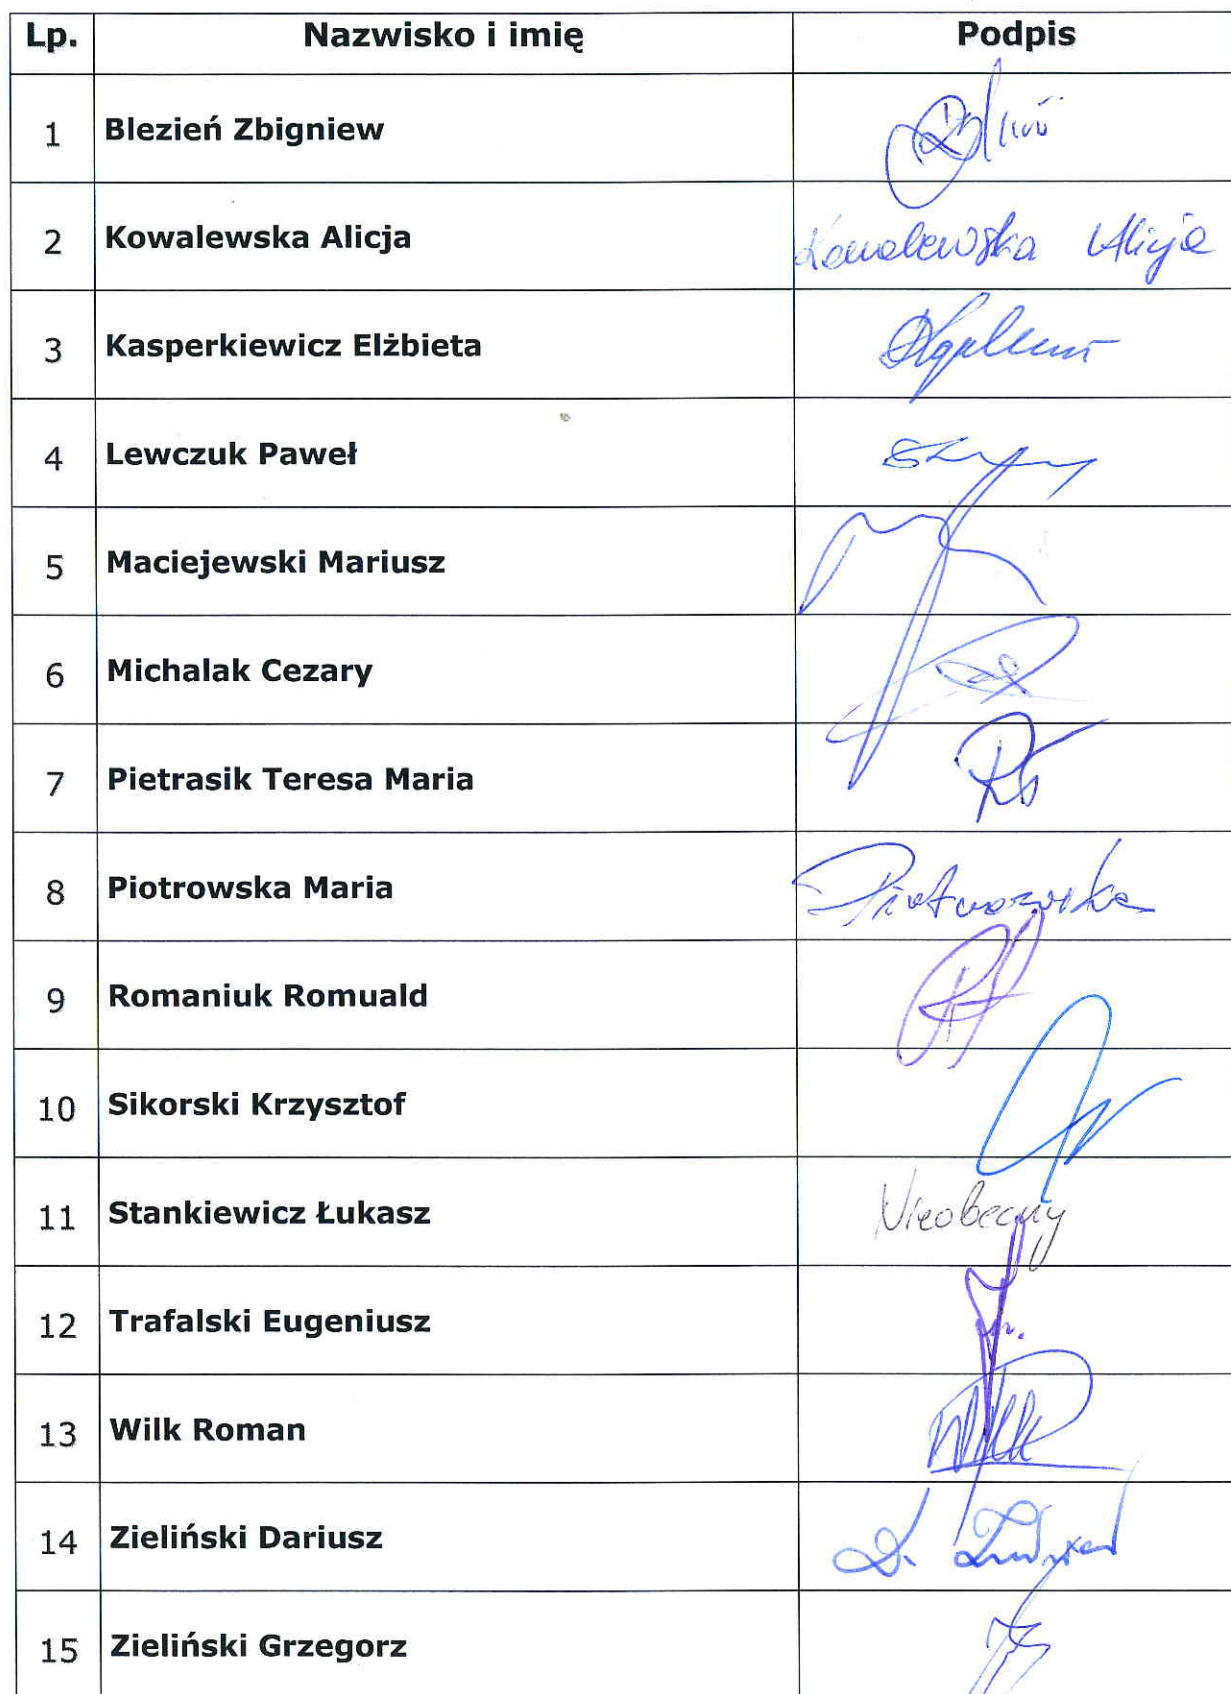 Lp. Nazwisko i imię Podpis
1 Blezień Zbigniew
2 Kowalewska Alicja Kowalewska Alicja
3 Kasperkiewicz Elżbieta
4 Lewczuk Paweł
5 Maciejewski Mariusz
6 Michalak Cezary
7 Pietrasik Teresa Maria
8 Piotrowska Maria Piotrowska
9 Romaniuk Romuald
10 Sikorski Krzysztof
11 Stankiewicz Łukasz Nieobecny
12 Trafalski Eugeniusz
13 Wilk Roman Wilk
14 Zieliński Dariusz D.
15 Zieliński Grzegorz